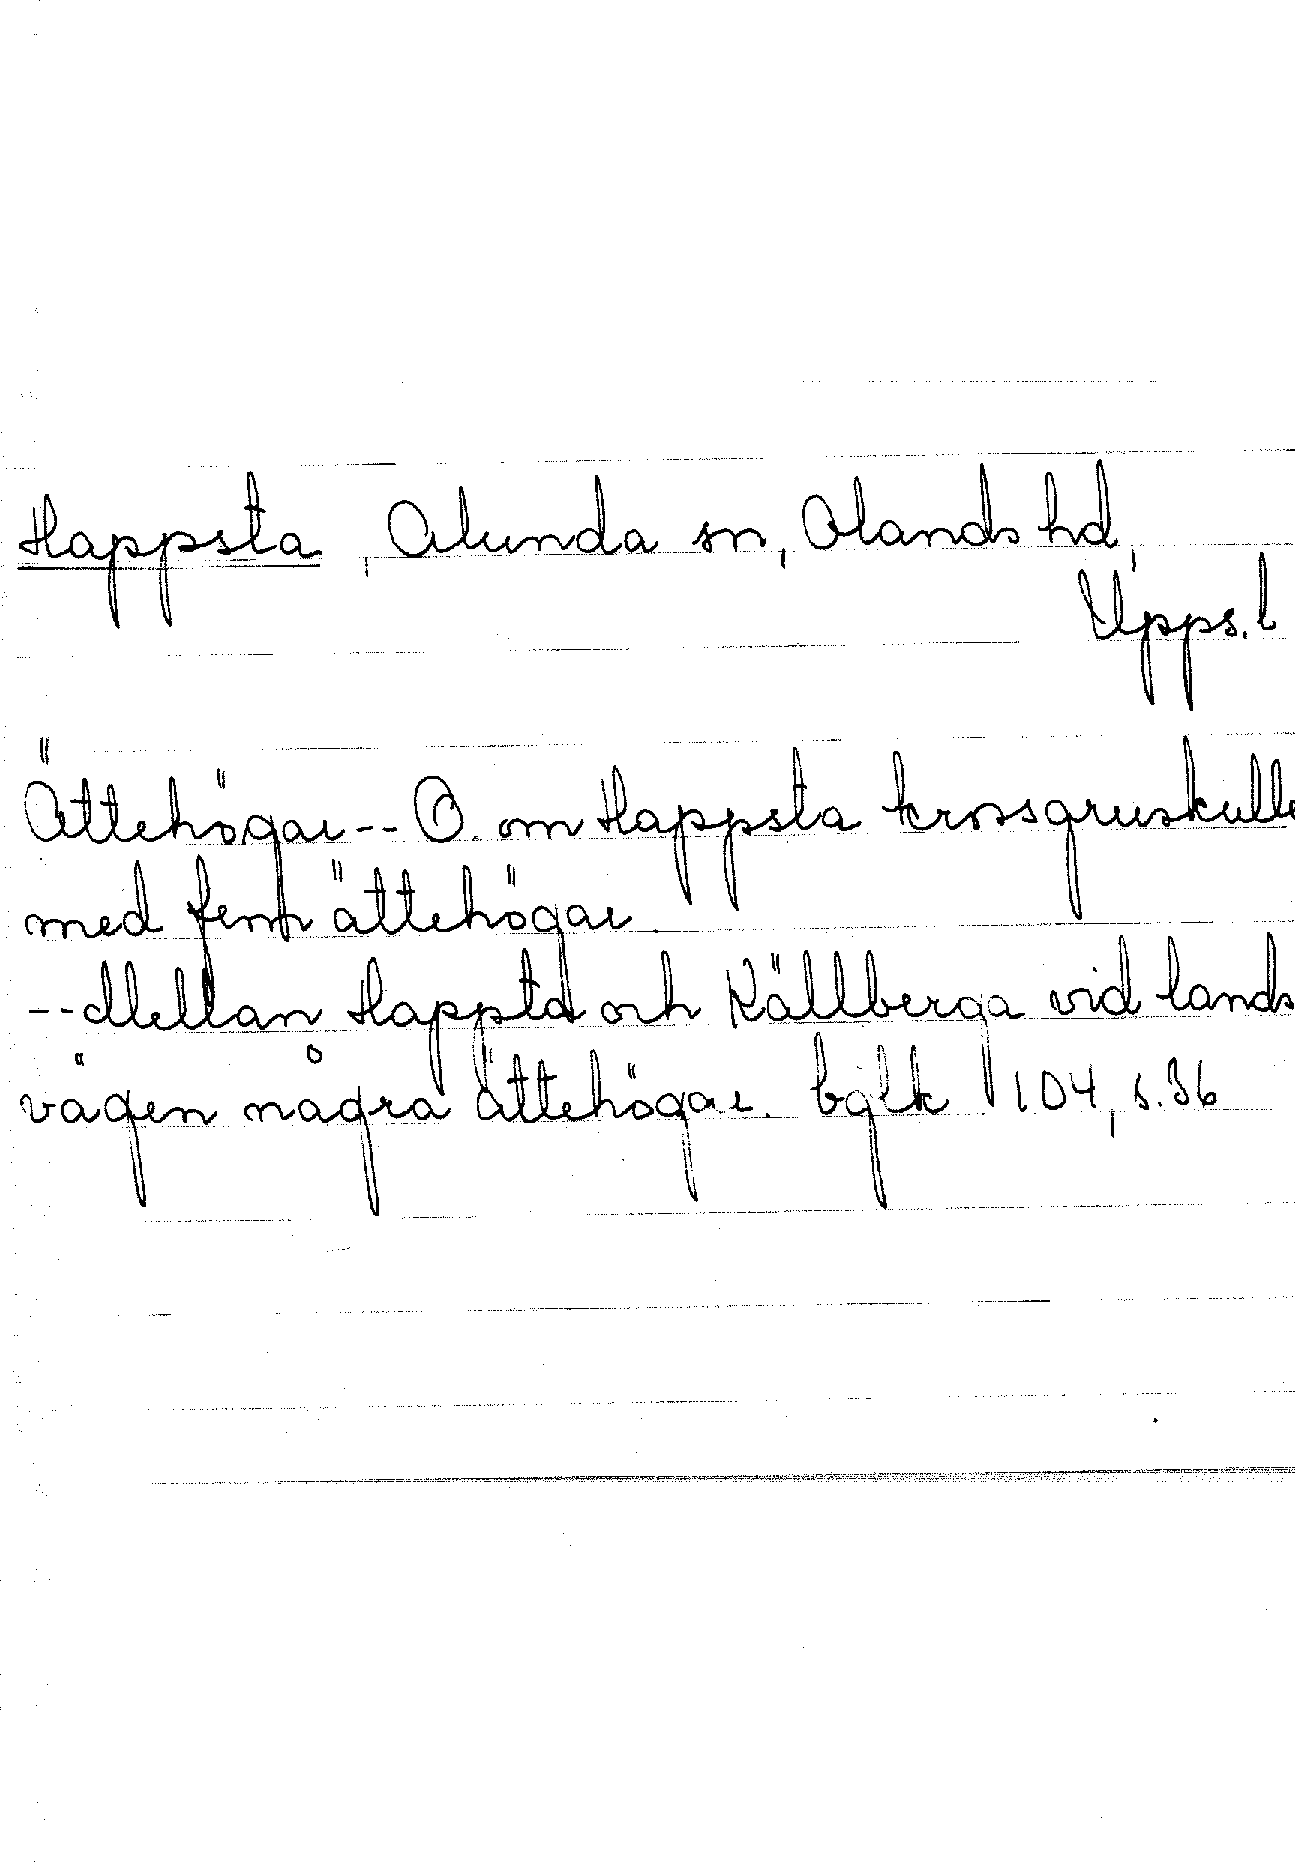 Happsta, Alunda sn, Olands hd,
Upps. l
Ättehögar -- O. om Happsta krossgruskulle
med fem ättehögar
-- Mellan Happta och Källberga vid lands
vägen några ättehögar. bglk 104, s. 36